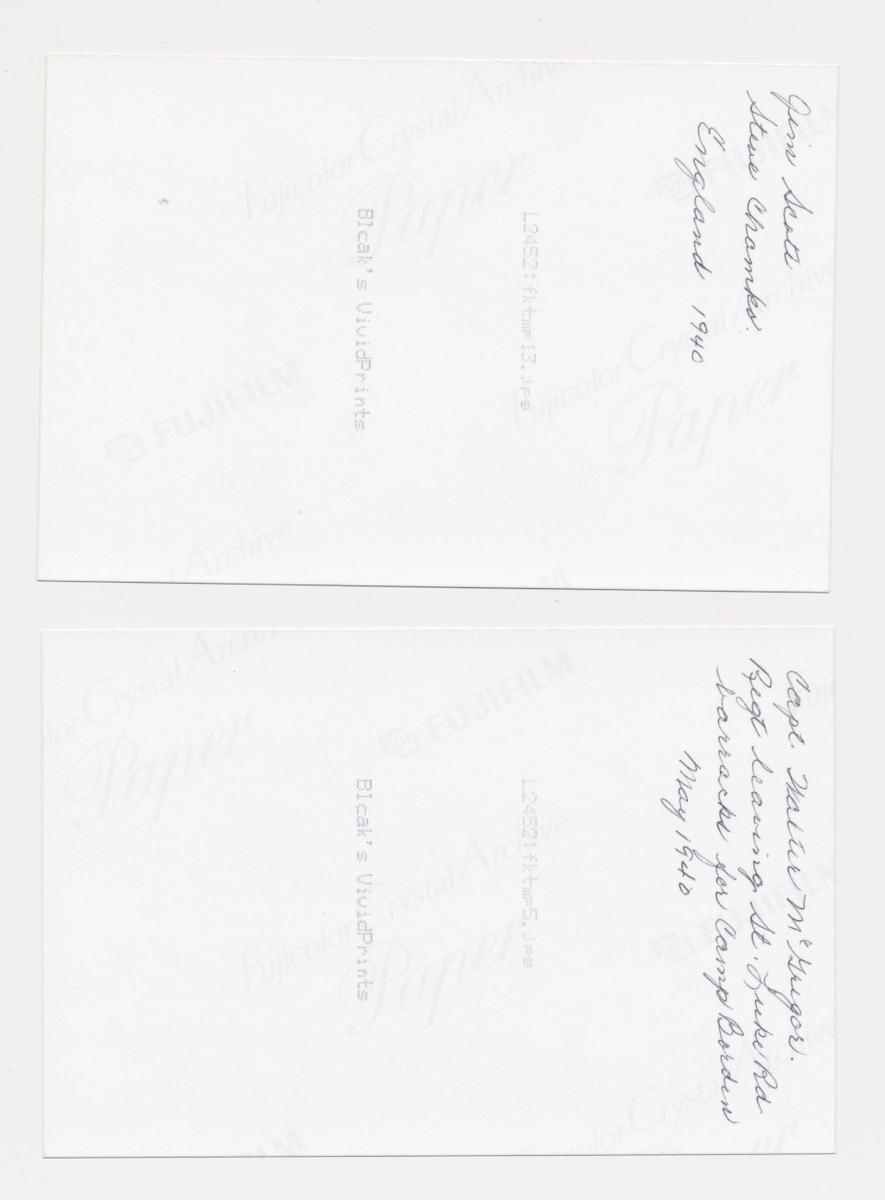 Jim Scott
Steve Chomko.
England 1940
L2452:fktmp13.jpg
Blcak's VividPrints
Fujicolor Crystal Archive
Paper
FUJIFILM
Fujicolor Crystal Archive
Paper
FUJIFILM
Capt. Walter McGregor.
Regt leaving St. Luke Rd
barracks for Camp Borden
May 1940
L2452:fktmp5.jpg
Blcak's VividPrints
Fujicolor Crystal Archive
Paper
FUJIFILM
Fujicolor Crystal Archive
Paper
FUJIFILM